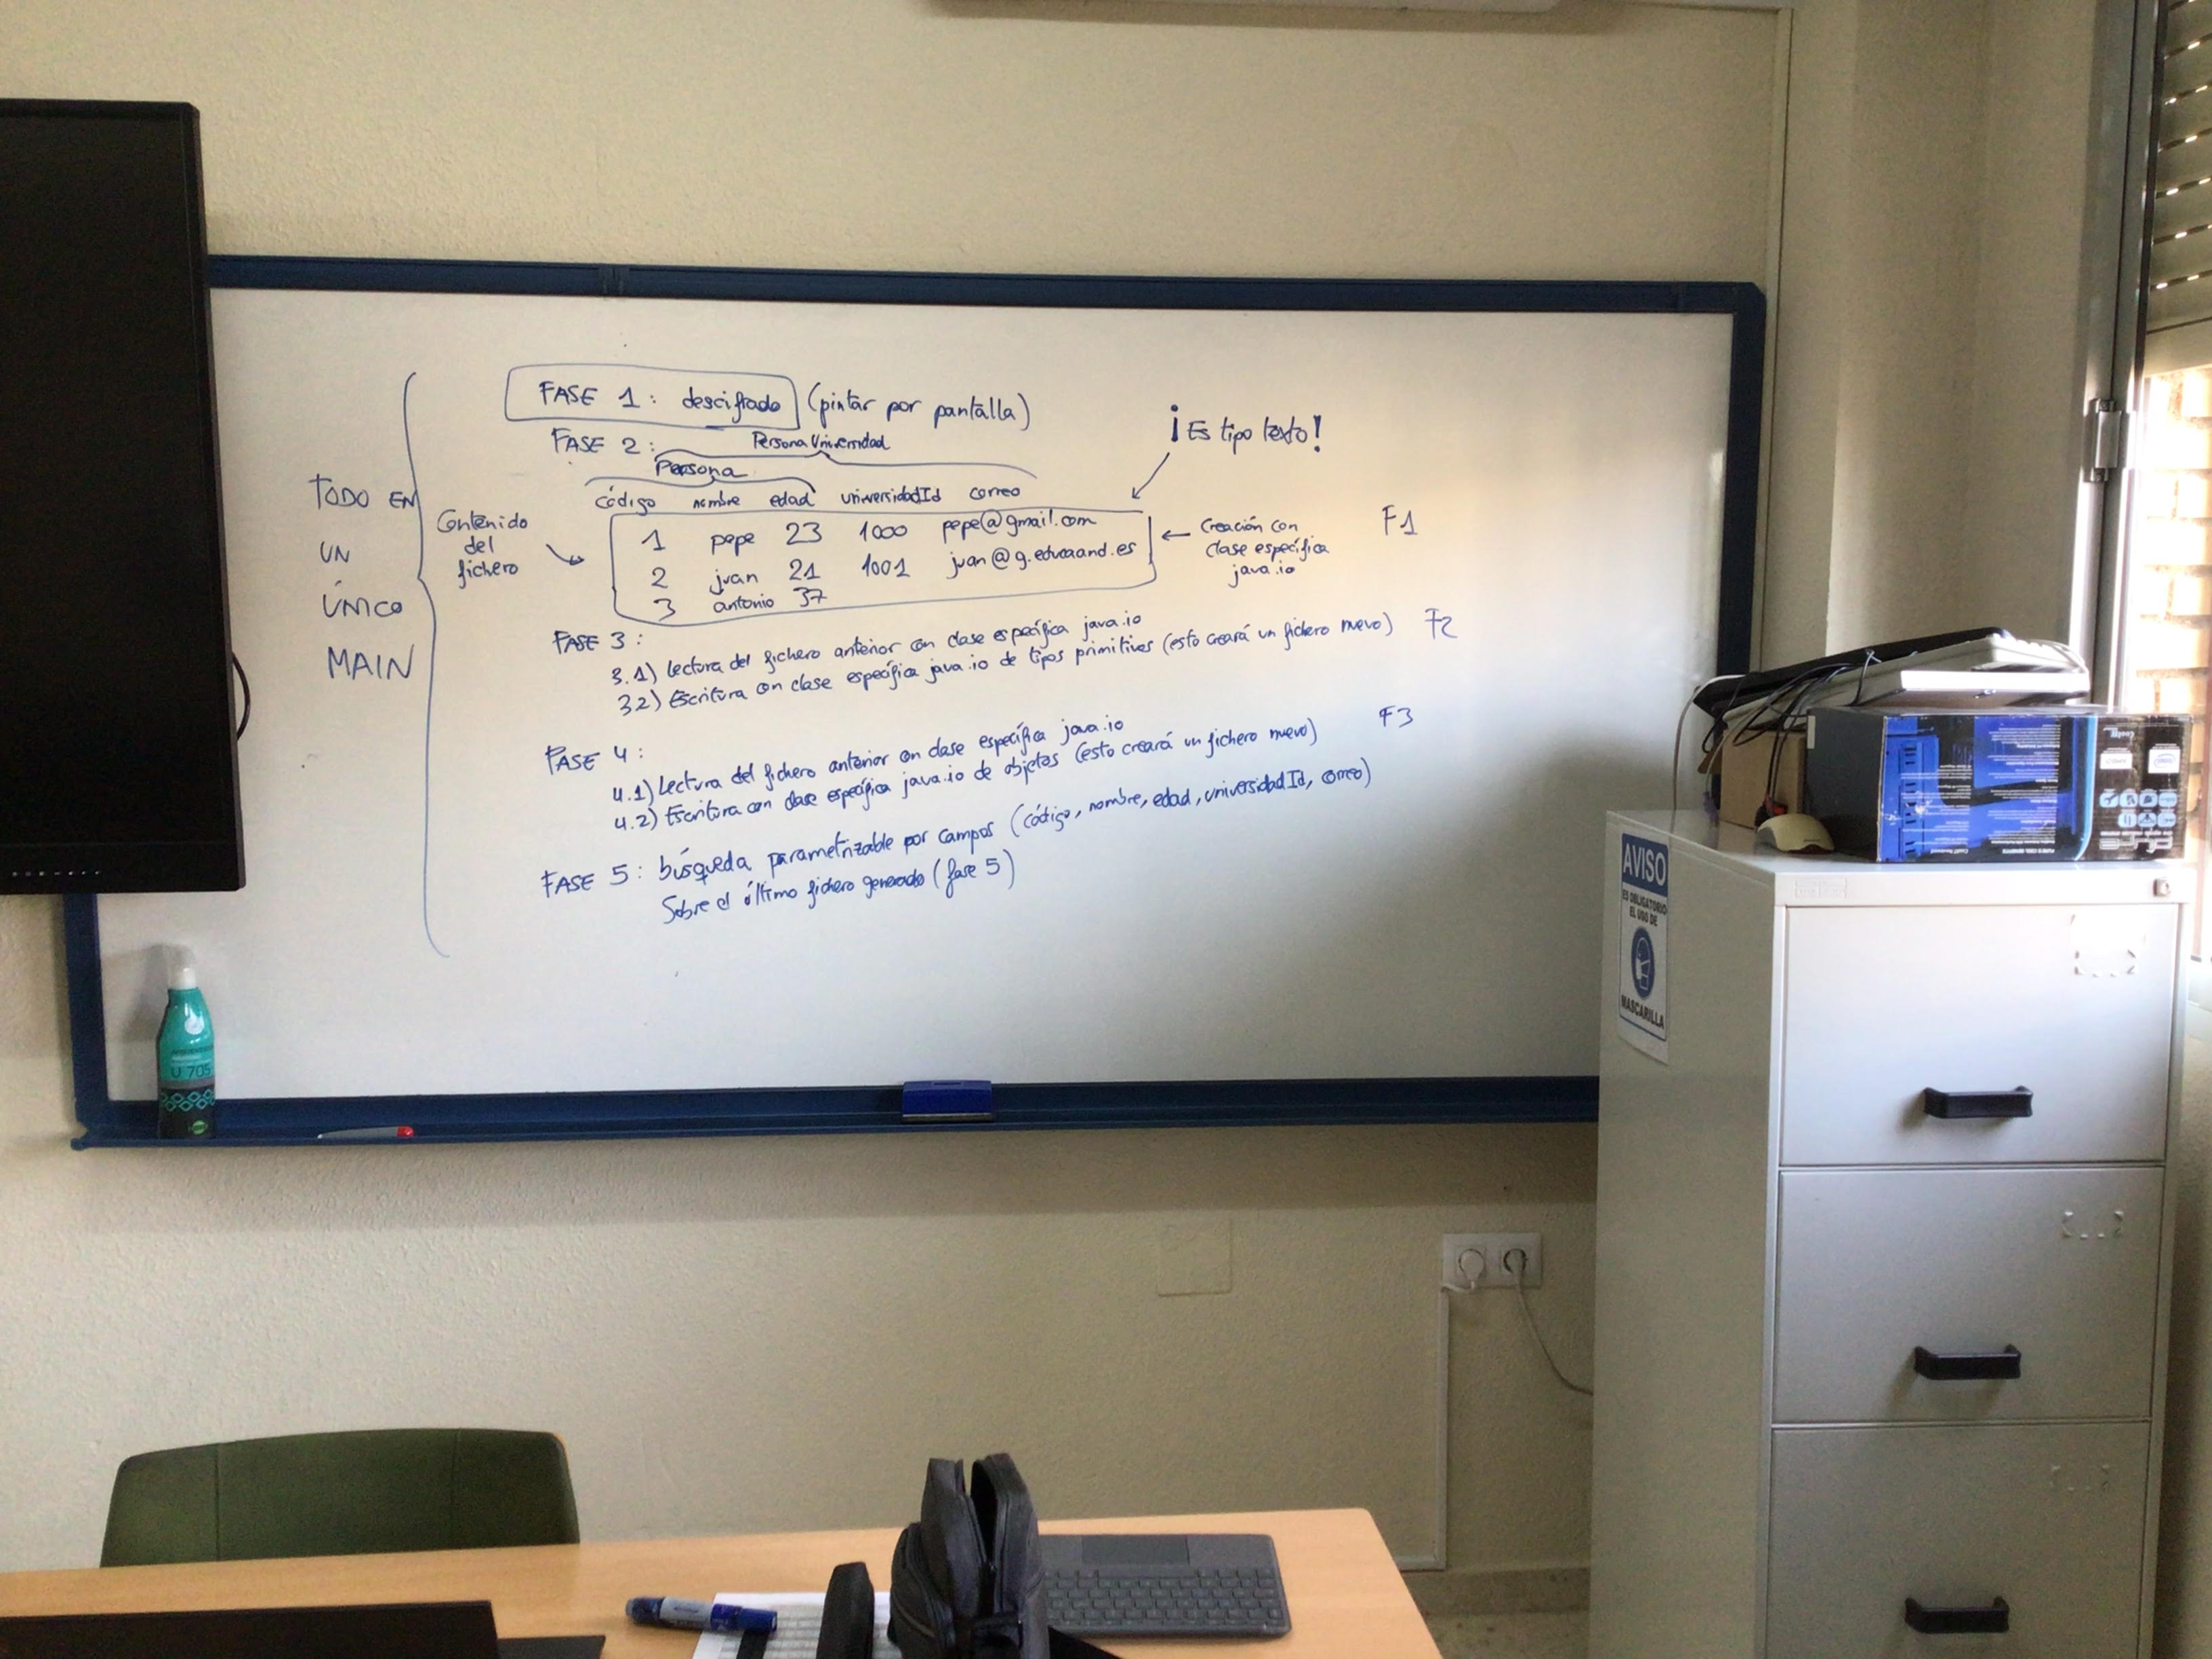 FASE 1: descifrado (pintar por pantalla)
FASE 2:
PersonaUniversidad
Persona
¡Es tipo texto!
código nombre edad universidadId correo
TODO EN
UN
ÚNICO
MAIN
Contenido
del
fichero
1 pepe 23 1000 pepe@gmail.com
2 juan 21 1001 juan@g.educaand.es
3 antonio 37
Creación con
clase específica
java.io
F1
FASE 3:
3.1) Lectura del fichero anterior con clase específica java.io
3.2) Escritura con clase específica java.io de tipos primitivos (esto creará un fichero nuevo)
F2
FASE 4:
4.1) Lectura del fichero anterior con clase específica java.io
4.2) Escritura con clase específica java.io de objetos (esto creará un fichero nuevo)
F3
FASE 5: búsqueda parametrizable por campos (código, nombre, edad, universidadId, correo)
Sobre el último fichero generado (fase 5)
AVISO
ES OBLIGATORIO
EL USO DE
MASCARILLA
U 705